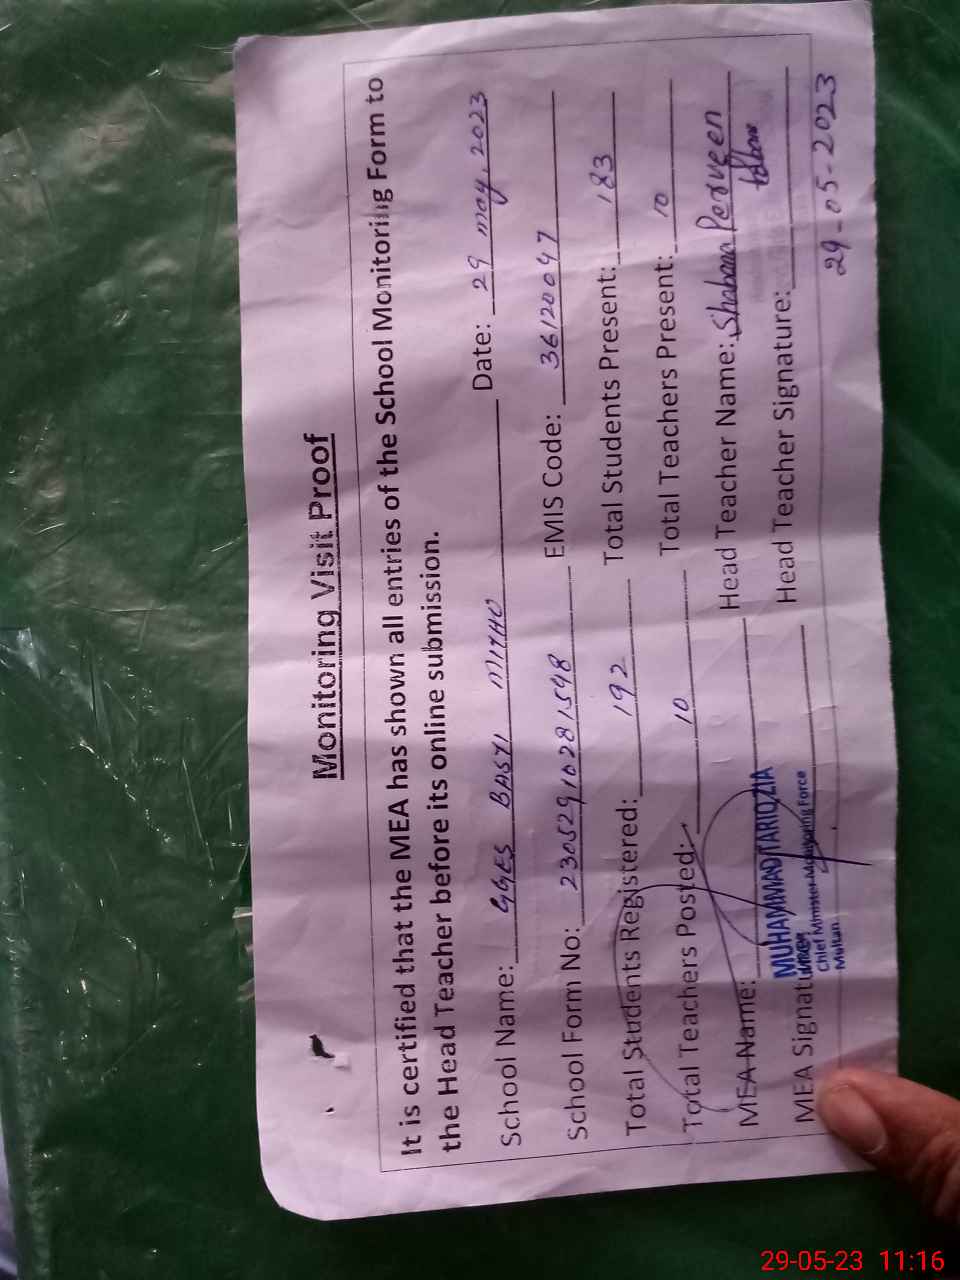 Monitoring Visit Proof
It is certified that the MEA has shown all entries of the School Monitoring Form to
the Head Teacher before its online submission.
School Name: GGES BASTI MITHU Date: 29 may, 2023
School Form No: 23052910281548 EMIS Code: 36120097
Total Students Registered: 192 Total Students Present: 183
Total Teachers Posted: 10 Total Teachers Present: 10
MEA Name: Head Teacher Name: Shabana Perveen
MUHAMMAD TARIQ ZIA
MEA Signature: Head Teacher Signature:
Chief Minister Monitoring Force
Multan
29-05-2023
29-05-23 11:16